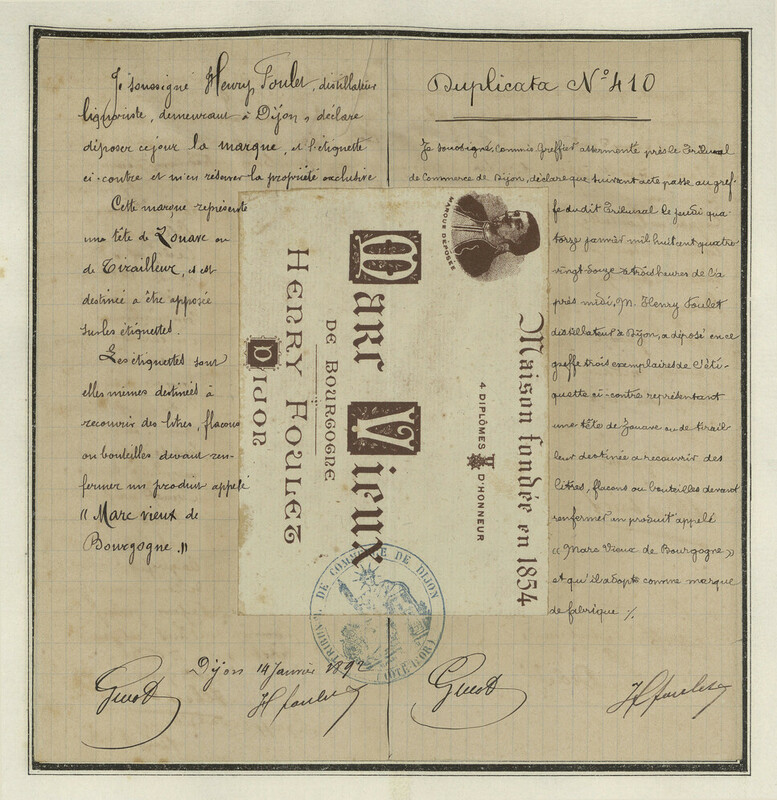 Je soussigné Henry Foulet, distillateur
liquoriste, demeurant à Dijon, déclare
déposer ce jour la marque, et l'étiquette
ci-contre et m'en réserver la propriété exclusive
Cette marque représente
une tête de Zouave ou
de Tirailleur, et est
destinée a être apposée
sur les étiquettes.
Les étiquettes sont
elles mêmes destinées à
recouvrir des litres, flacons
ou bouteilles devant ren-
fermer un produit appelé
"Marc vieux de
Bourgogne."
Dijon 14 Janvier 1892
H foulet
Duplicata N° 410
Je soussigné, Commis Greffier assermenté près le Tribunal
de Commerce de Dijon, déclare que suivant acte passé au gref-
fe du dit Tribunal le jeudi qua-
torze janvier mil huit cent quatre
vingt douze à trois heures de l'a
près midi, M. Henry Foulet
distillateur à Dijon, a déposé en ce
greffe trois exemplaires de l'éti-
quette ci-contre représentant
une tête de Zouave ou de tirail
leur destinée a recouvrir des
litres, flacons ou bouteilles devant
renfermer un produit appelé
"Marc Vieux de Bourgogne"
et qu'il adopte comme marque
de fabrique ./.
H foulet
MARQUE DÉPOSÉE
Maison fondée en 1854
4 DIPLÔMES D'HONNEUR
Marc Vieux
DE BOURGOGNE
HENRY FOULET
DIJON
TRIBUNAL DE COMMERCE DE DIJON
(CÔTE D'OR)